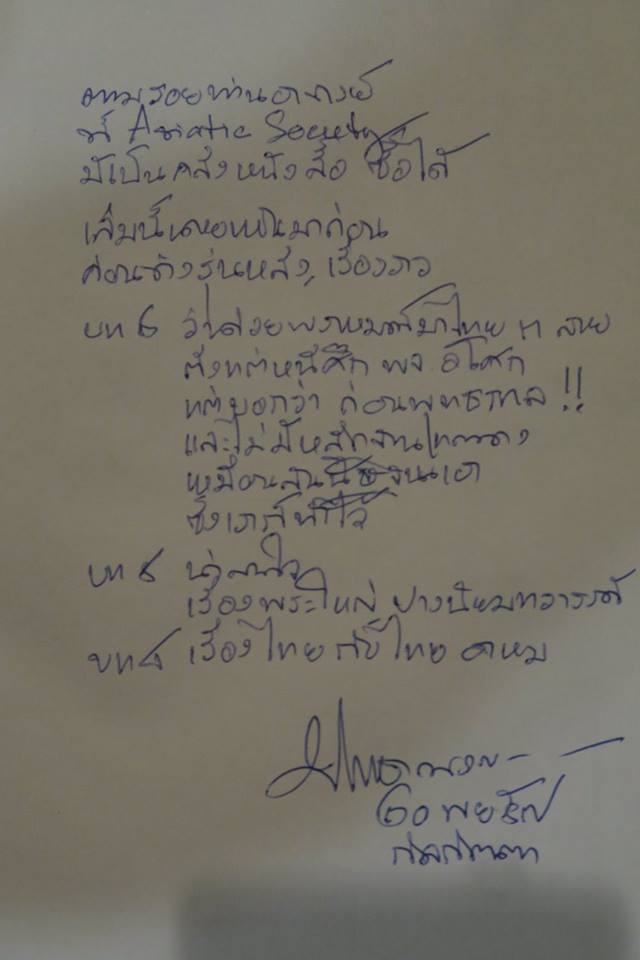 ตามรอยท่านอาจารย์
ที่ Asiatic Society
มีเป็นคลังหนังสือ ซื้อได้
เล่มนี้เคยเห็นมาก่อน
ค่อนข้างรุ่นหลัง, เรื่องราว
บท ๖ ว่าด้วยพราหมณ์มาไทย ๓ สาย
ตั้งแต่หนีศึก พจ อโศก
แต่บอกว่า ก่อนพุทธกาล !!
และไม่มีหลักฐานแสดง
เหมือนสันนิษฐานเอา
ซึ่งเราก็
บท ๘ น่าสนใจ
เรื่องพระใหญ่ ปางนิยมทวารวดี
บท ๙ เรื่องไทยกับไทย อาหม
๒๐ พย
กัลกัตตา